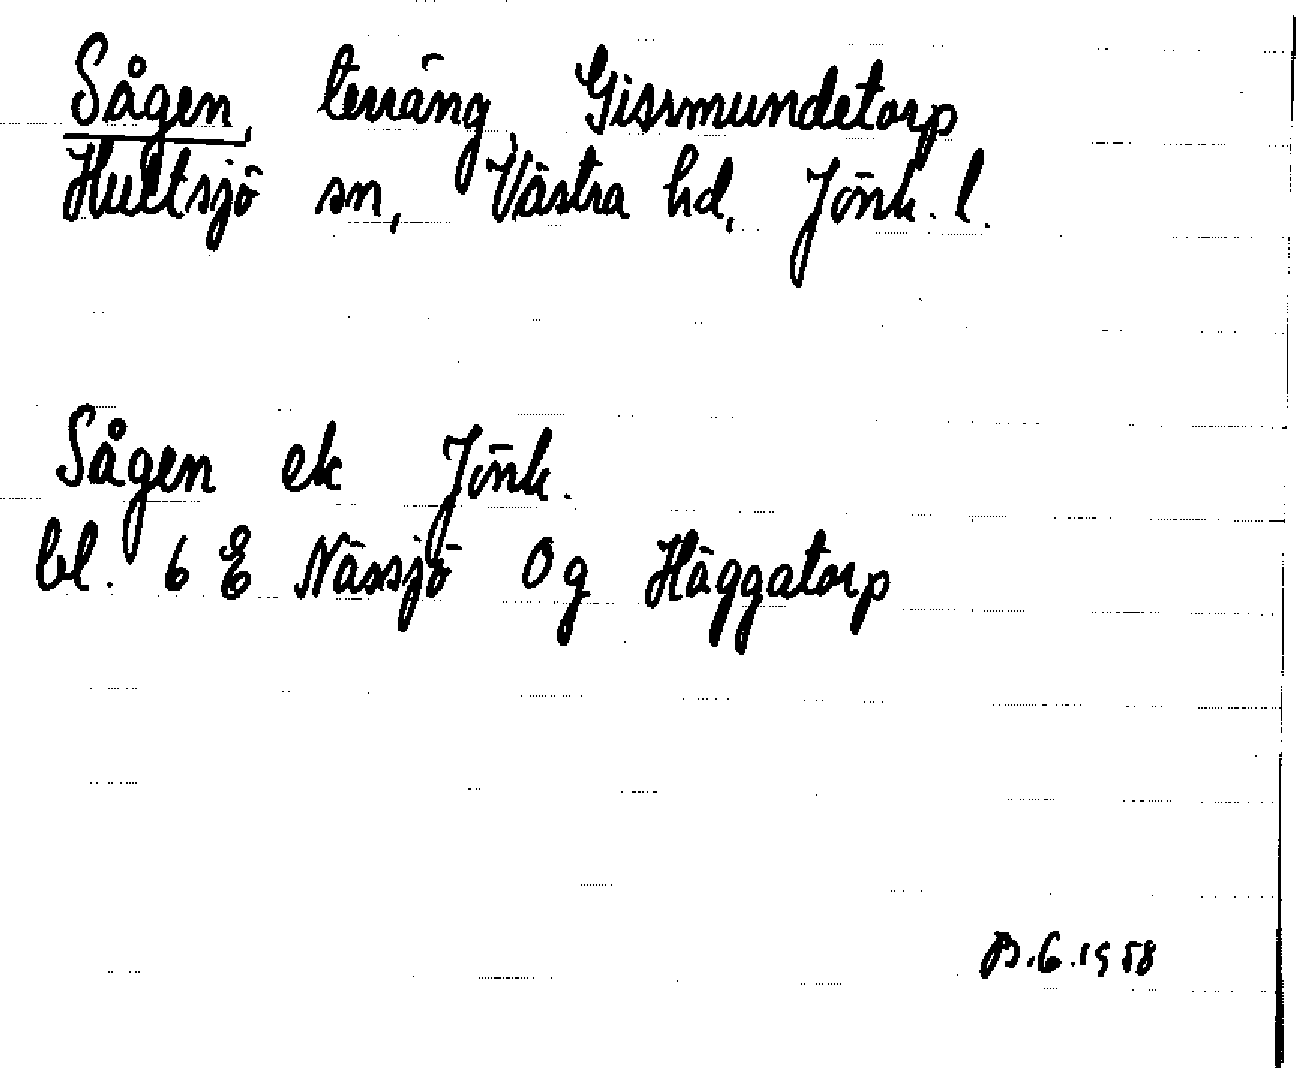 Sågen, terräng, Gissmundetorp
Hultsjö sn, Västra hd, Jönk. l.
Sågen ek Jönk.
bl. 6 E Nässjö 0 g Häggatorp
B.G. 1958